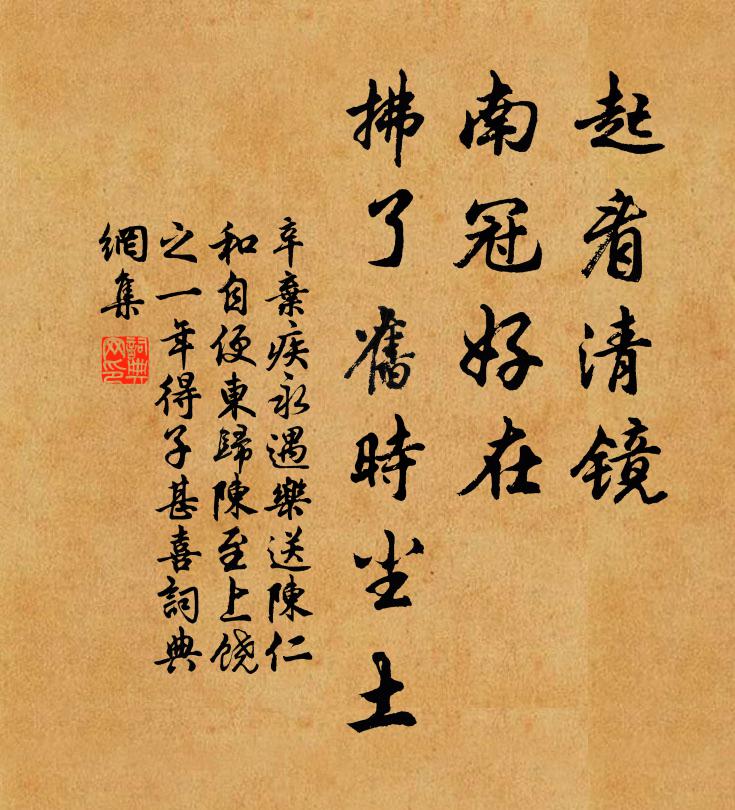 起看清镜
南冠好在
拂了舊時尘土
辛棄疾永遇樂送陳仁
和自便東歸陳至上饶
之一年得子甚喜詞典
網集
詞典
网印